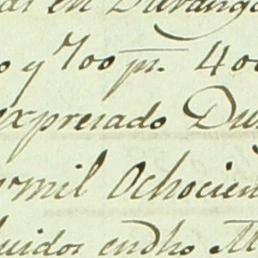 en Durango
y 700 ps. 400
expresado Du
mil Ochocien
en dho